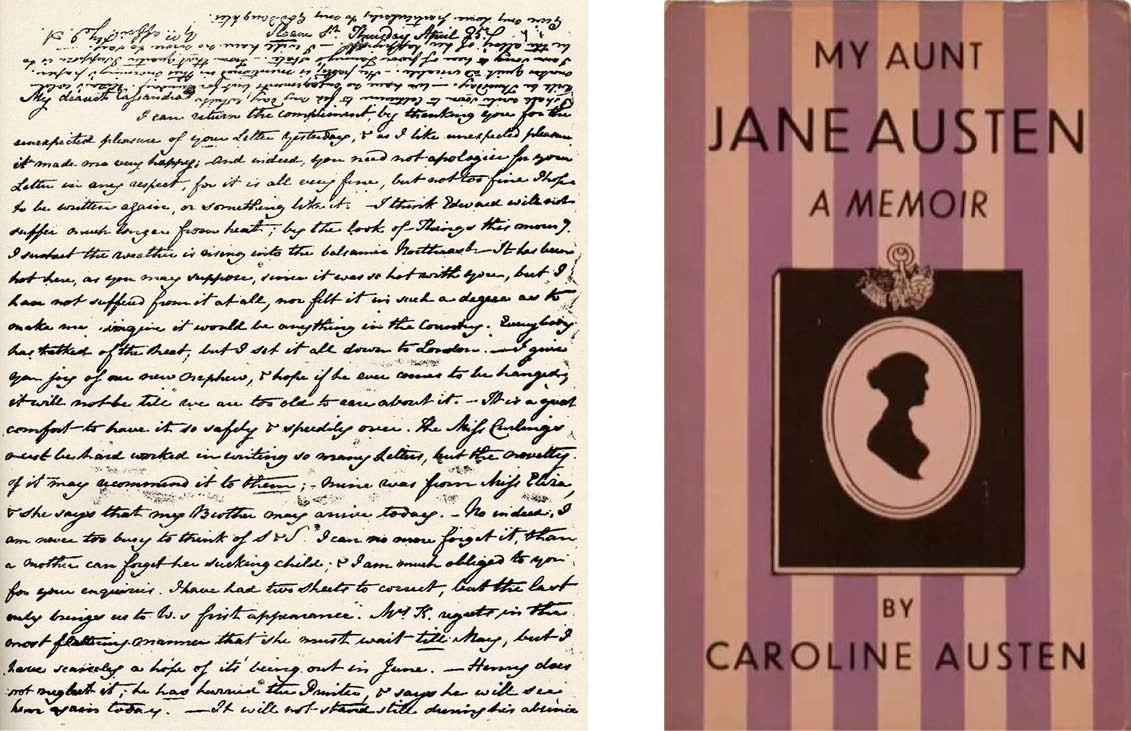 Give my Love particularly to my God-Daughter.
Sloane St. Thursday April 25.
My dearest Cassandra
I can return the compliment by thanking you for the
unexpected pleasure of your Letter yesterday, & as I like unexpected pleasure,
it made me very happy; And indeed, you need not apologise for your
Letter in any respect, for it is all very fine, but not too fine I hope
to be written again, or something like it. — I think Edward will not
suffer much longer from heat; by the look of Things this morng.
I suspect the weather is rising into the balsamic Northeast. — It has been
hot here, as you may suppose, since it was so hot with you, but I
have not suffered from it at all, nor felt it in such a degree as to
make me imagine it would be anything in the Country. Everybody
has talked of the heat, but I set it all down to London. — I give
you joy of our new nephew, & hope if he ever comes to be hanged,
it will not be till we are too old to care about it. — It is a great
comfort to have it so safely & speedily over. The Miss Curlings
must be hard worked in writing so many Letters, but the novelty
of it may recommend it to them; — mine was from Miss Eliza,
& she says that my Brother may arrive today. — No indeed, I
am never too busy to think of S & S. I can no more forget it, than
a mother can forget her sucking child; & I am much obliged to you
for your enquiries. I have had two sheets to correct, but the last
only brings us to W.s first appearance. Mrs K. regrets in the
most flattering manner that she must wait till May, but I
have scarcely a hope of its being out in June. — Henry does
not neglect it; he has hurried the Printer, & says he will see
him again today. — It will not stand still during his absence
MY AUNT
JANE AUSTEN
A MEMOIR
BY
CAROLINE AUSTEN